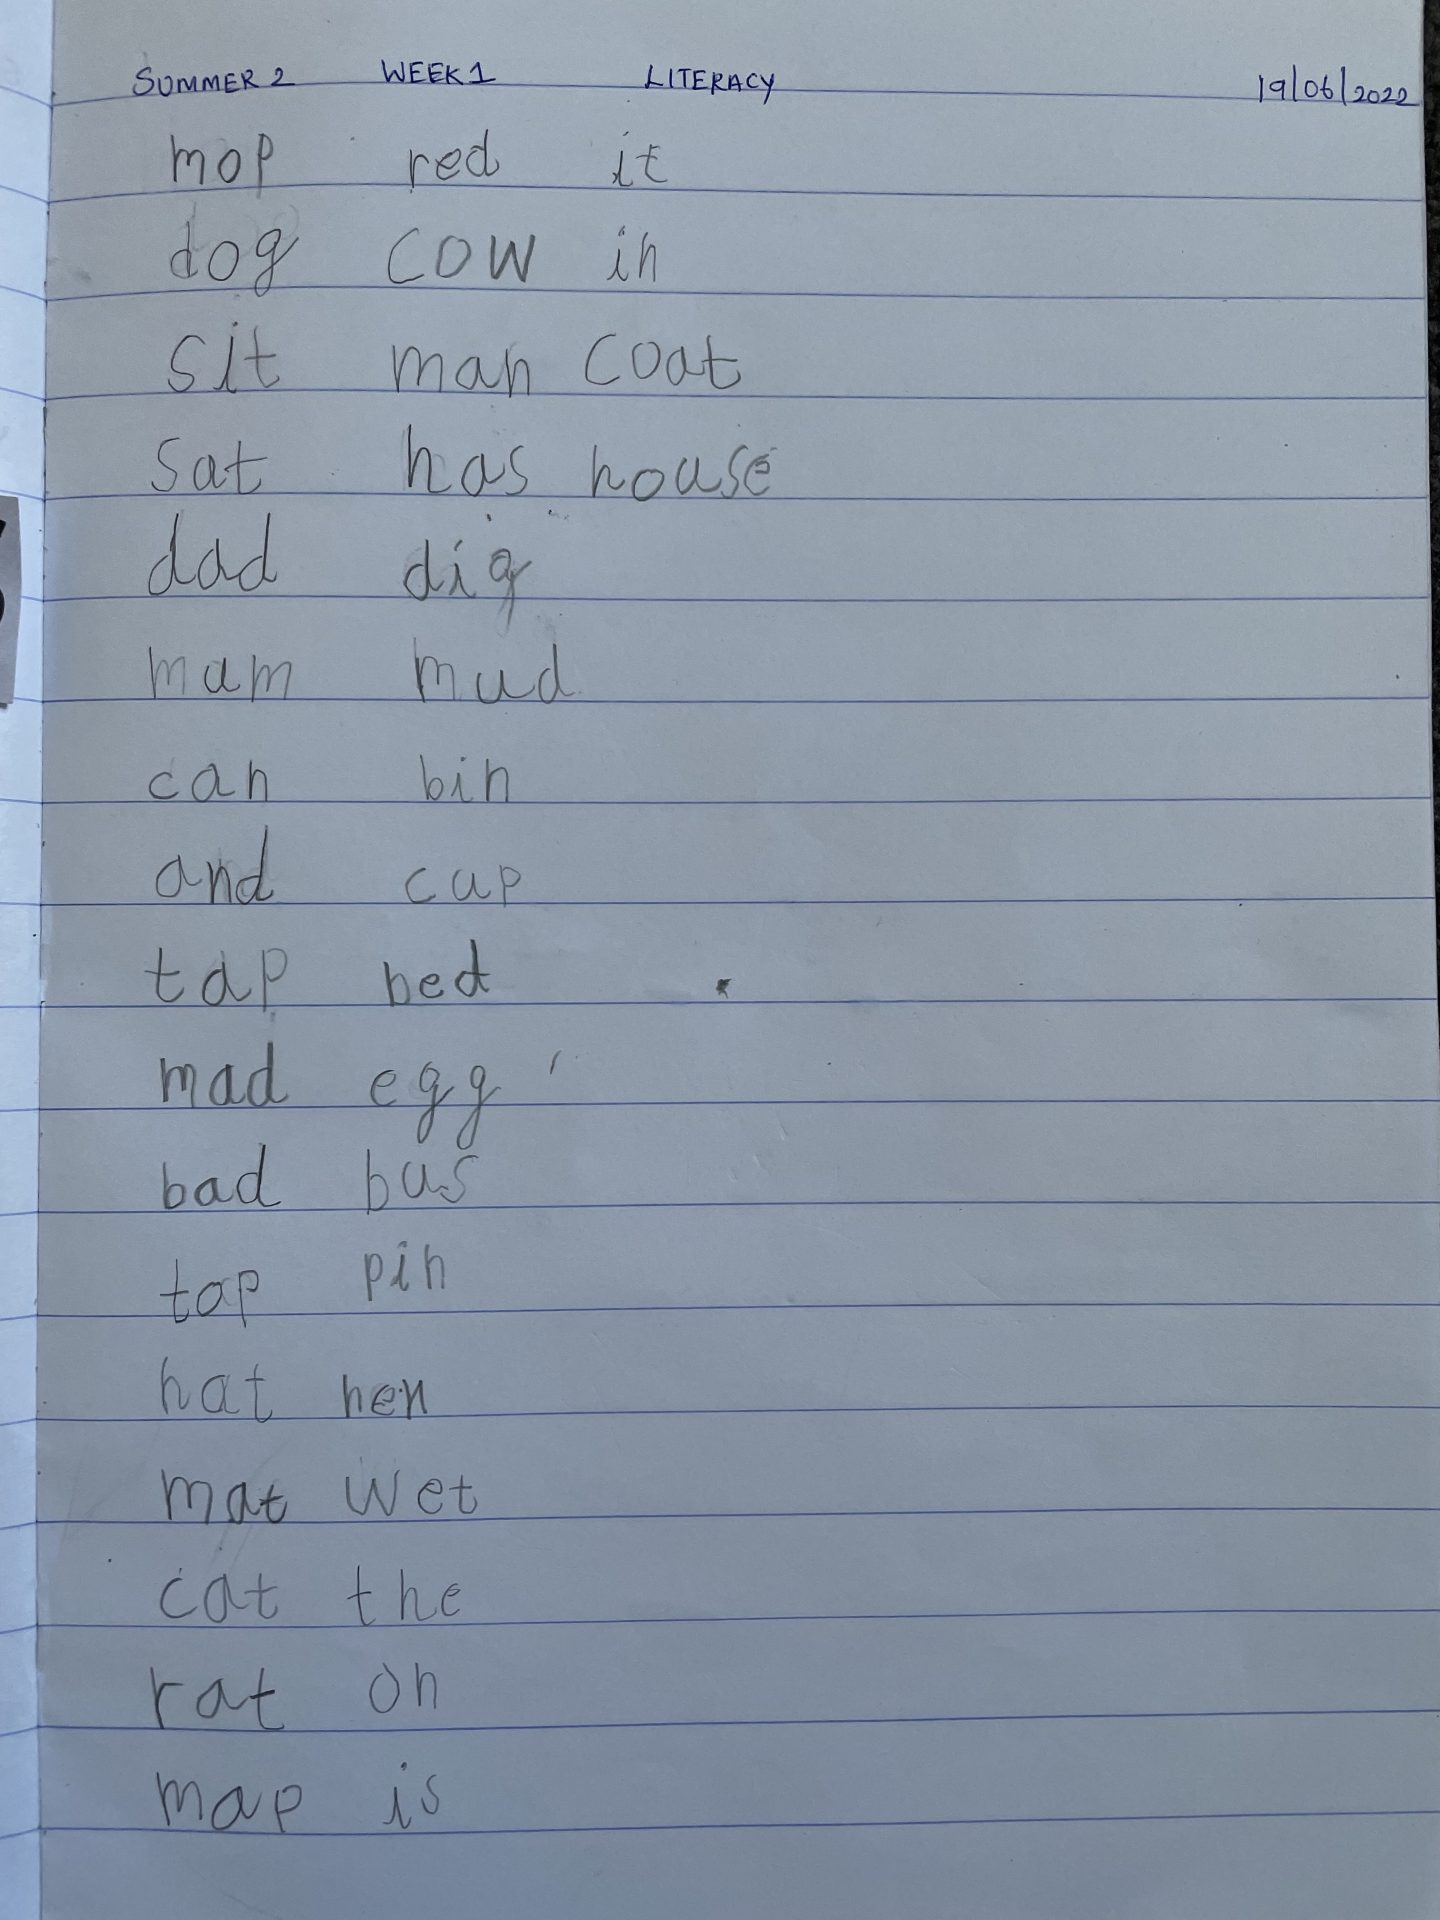 SUMMER 2 WEEK 1 LITERACY 19/06/2022
mop red it
dog cow in
sit man coat
sat has house
dad dig
mam mud
can bin
and cup
tap bed
mad egg
bad bus
tap pin
hat hen
mat wet
cat the
rat on
map is